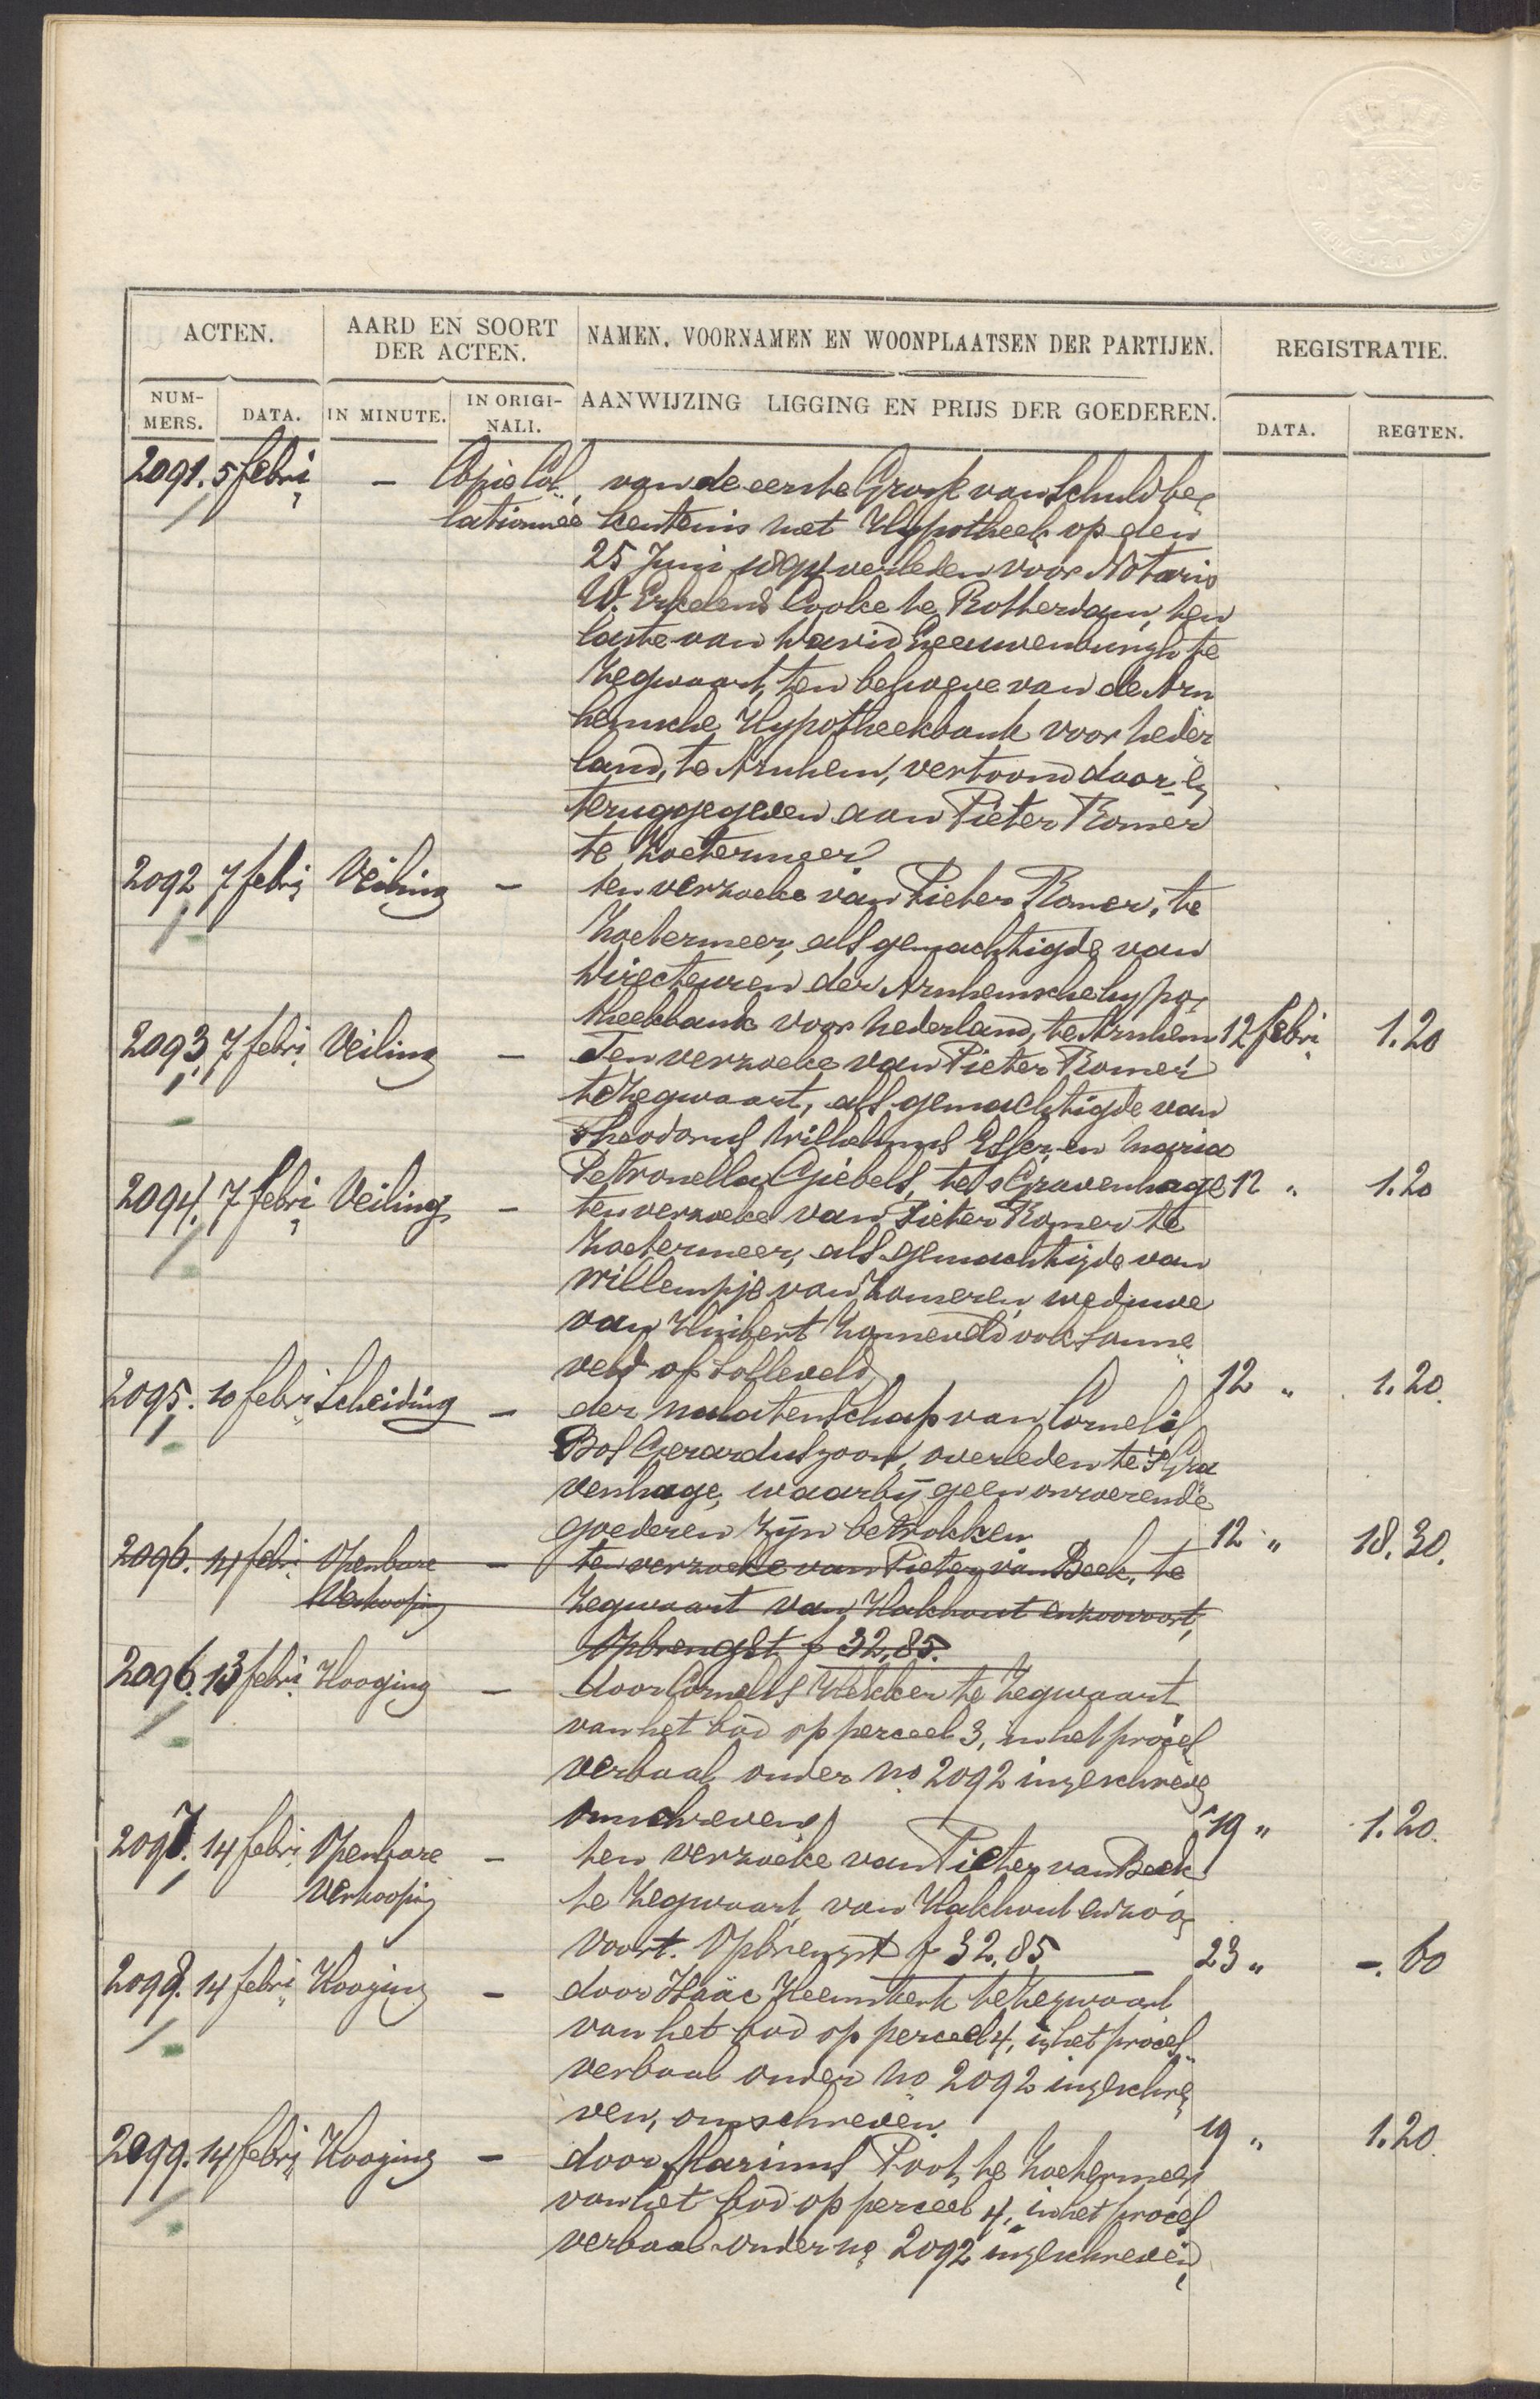 ACTEN.
AARD EN SOORT
DER ACTEN.
NAMEN, VOORNAMEN EN WOONPLAATSEN DER PARTIJEN.
REGISTRATIE.
NUM-
MERS.
DATA.
IN MINUTE.
IN ORIGI-
NALI.
AANWIJZING LIGGING EN PRIJS DER GOEDEREN.
DATA.
REGTEN.
2091. 5 febri – Copie Col van de eerste Grosse van Schuldbe
lationnée kentenis met Hypotheek op den
25 Juni 1894 verleden voor Notaris
W. Erkelens Cooke te Rotterdam, ten
laste van David Leeuwenburgh te
Zegwaart, ten behoeve van de Arn
hemsche Hypotheekbank voor Neder
land, te Arnhem, vertoond door en
teruggegeven aan Pieter Romer
te Zoetermeer
2092 7 febri Veiling – ten verzoeke van Pieter Romer, te
Zoetermeer, als gemachtigde van
Directeuren der Arnhemsche hypo
theekbank voor Nederland, te Arnhem 12 febri 1.20
2093. 7 febri Veiling – Ten verzoeke van Pieter Romer
te Zegwaart, als gemachtigde van
Theodorus Wilhelmus Esser en Maria
Petronella Giebels, te s Gravenhage 12 " 1.20
2094. 7 febri Veiling – ten verzoeke van Pieter Romer te
Zoetermeer, als gemachtigde van
Willempje van Zomeren, weduwe
van Huibert Zonneveld ook Sonne
veld of Solleveld 12 " 1.20
2095. 10 febri Scheiding – der nalatenschap van Cornelis
Bos Gerarduszoon, overleden te s' Gra
venhage, waarbij geen onroerende
goederen zijn betrokken 12 " 18.30.
2096. 14 febri Openbare – ten verzoeke van Pieter van Beek, te
Verkooping Zegwaart van Hakhout enzoovoort,
Opbrengst f 32,85.
2096. 13 febri Hooging – door Cornelis Hekker te Zegwaart
van het bod op perceel 3, in het proces
verbaal onder no 2092 ingeschreven
omschreven 19 " 1.20.
2097. 14 febri Openbare – ten verzoeke van Pieter van Beek
Verkooping te Zegwaart van Hakhout enzoo
voort. Opbrengst f 32,85 23 " –.60
2098. 14 febri Hooging – door Isaäc Heemskerk te Zegwaart
van het bod op perceel 4, in het proces
verbaal onder no 2092 ingeschre
ven, omschreven. 19 " 1.20.
2099. 14 febri Hooging – door Marinus Poot, te Zoetermeer
van het bod op perceel 4, in het proces
verbaal onder no 2092 ingeschreven,